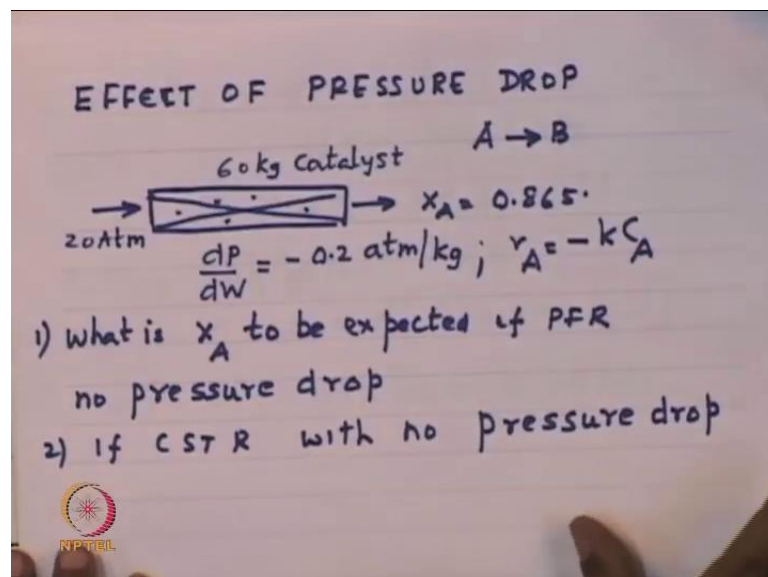 EFFECT OF PRESSURE DROP
A → B
60kg Catalyst
20Atm → → XA = 0.865.
dP/dW = - 0.2 atm/kg ; rA = - kCA
1) What is XA to be expected if PFR
no pressure drop
2) If CSTR with no pressure drop
NPTEL